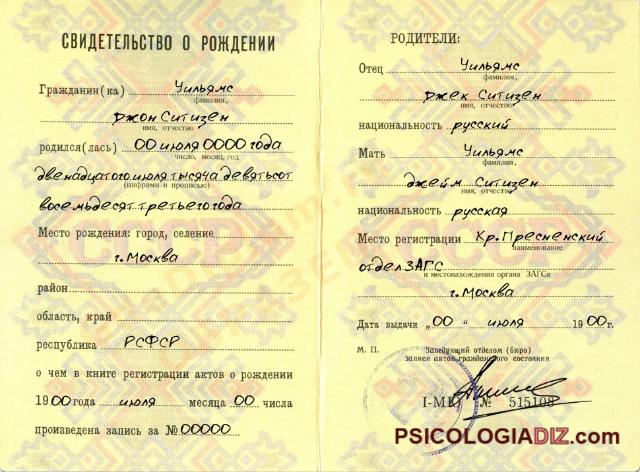 СВИДЕТЕЛЬСТВО О РОЖДЕНИИ
Гражданин(ка) Уильямс
фамилия,
Джон Ситизен
имя, отчество
родился(лась) 00 июля 0000 года
число, месяц, год
двенадцатого июля тысяча девятьсот
(цифрами и прописью)
восемьдесят третьего года
Место рождения: город, селение
г. Москва
район
область, край
республика РСФСР
о чем в книге регистрации актов о рождении
1900 года июля месяца 00 числа
произведена запись за № 00000
РОДИТЕЛИ:
Отец Уильямс
фамилия,
Джек Ситизен
имя, отчество
национальность русский
Мать Уильямс
фамилия,
Джейм Ситизен
имя, отчество
национальность русская
Место регистрации Кр. Пресненский
наименование
отдел ЗАГС
и местонахождения органа ЗАГСа
г. Москва
Дата выдачи „00" июля 1900 г.
М. П. Заведующий отделом (бюро)
записи актов гражданского состояния
№ 515108
PSICOLOGIADIZ.com